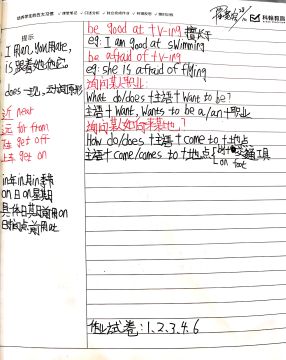 提示
I用am, You用are,
is跟着她他它。
does一现, 动词用原形
近 near
远 far from
下车 get off
上车 get on
in年in月in季节
on日on星期
具体日期前用on
时间点前用at
be good at +v-ing 擅长于
eg: I am good at swimming
be afraid of +v-ing
eg: she is afraid of flying
询问某人职业:
What do/does+主语+want to be?
主语+want/wants to be a/an+职业
How do/does+主语+come to+地点
主语+come/comes to+地点
on foot
作业:试卷:1.2.3.4.6